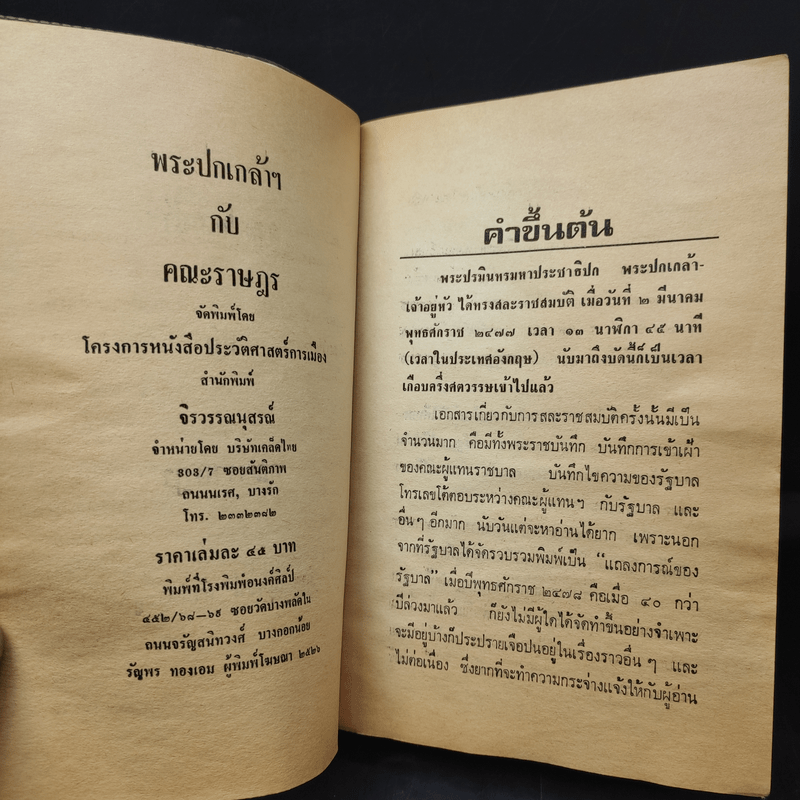 พระปกเกล้าฯ
กับ
คณะราษฎร
จัดพิมพ์โดย
โครงการหนังสือประวัติศาสตร์การเมือง
สำนักพิมพ์
จิรวรรณนุสรณ์
จำหน่ายโดย บริษัทเคล็ดไทย
303/7 ซอยสันติภาพ
ถนนนเรศ, บางรัก
โทร. ๒๓๓๒๓๘๒
ราคาเล่มละ ๔๕ บาท
พิมพ์ที่โรงพิมพ์อนงค์ศิลป์
๔๕๒/๖๘–๖๙ ซอยวัดบางพลัดใน
ถนนจรัญสนิทวงศ์ บางกอกน้อย
รัญพร ทองเอม ผู้พิมพ์โฆษณา ๒๕๒๖
คำขึ้นต้น
พระปรมินทรมหาประชาธิปก พระปกเกล้า-
เจ้าอยู่หัว ได้ทรงสละราชสมบัติ เมื่อวันที่ ๒ มีนาคม
พุทธศักราช ๒๔๗๗ เวลา ๑๓ นาฬิกา ๔๕ นาที
(เวลาในประเทศอังกฤษ) นับมาถึงบัดนี้ก็เป็นเวลา
เกือบครึ่งศตวรรษเข้าไปแล้ว
เอกสารเกี่ยวกับการสละราชสมบัติครั้งนั้นมีเป็น
จำนวนมาก คือมีทั้งพระราชบันทึก บันทึกการเข้าเฝ้า
ของคณะผู้แทนราชบาล บันทึกไขความของรัฐบาล
โทรเลขโต้ตอบระหว่างคณะผู้แทนฯ กับรัฐบาล และ
อื่นๆ อีกมาก นับวันแต่จะหาอ่านได้ยาก เพราะนอก
จากที่รัฐบาลได้จัดรวบรวมพิมพ์เป็น “แถลงการณ์ของ
รัฐบาล” เมื่อปีพุทธศักราช ๒๔๗๘ คือเมื่อ ๔๐ กว่า
ปีล่วงมาแล้ว ก็ยังไม่มีผู้ใดได้จัดทำขึ้นอย่างจำเพาะ
จะมีอยู่บ้างก็ประปรายเจือปนอยู่ในเรื่องราวอื่นๆ และ
ไม่ต่อเนื่อง ซึ่งยากที่จะทำความกระจ่างแจ้งให้กับผู้อ่าน